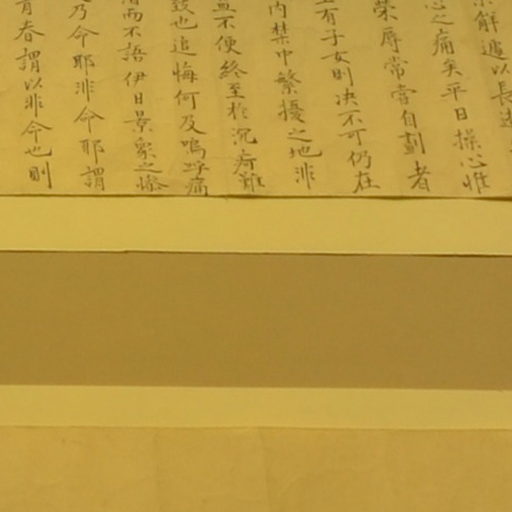 解遽以長逝
心之痛矣平日操心惟
榮辱常嘗自劃者
有子女則决不可仍在
内禁中繁擾之地非
不便終至於沉痾難
致也追悔何及嗚呼痛
而不語伊日景象之慘
乃命耶非命耶謂
青春謂以非命也則